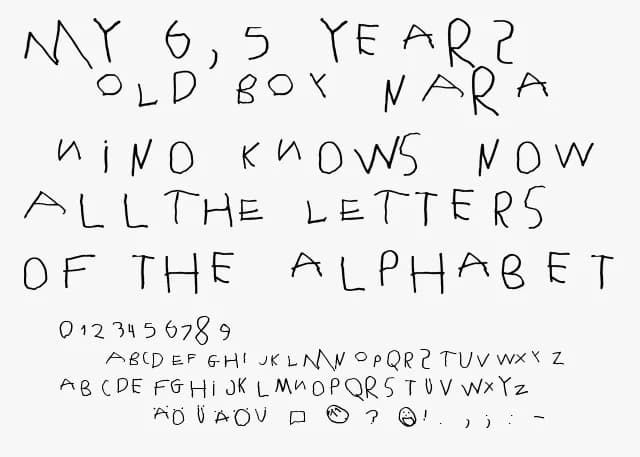 MY 6,5 YEARS
OLD BOY NARA
NiNO KNOWS NOW
ALL THE LETTERS
OF THE ALPHABET
0123456789
ABCDEFGHIJKLMNOPQRSTUVWXYZ
ABCDEFGHiJKLMNOPQRSTUVWXYZ
ÄÖÜAOU ? ! . , ; : -